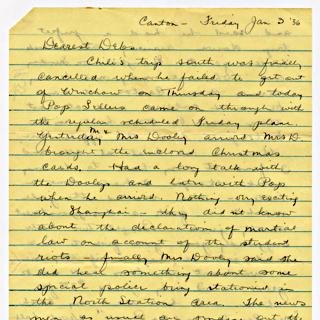 Canton - Friday Jan 3 '36
Dearest Debs:
Chili's trip south was finally
cancelled when he failed to get out
of Wenchow on Thursday and today
Pop Sellers came on through with
the regular scheduled Friday plane.
Yesterday Mr & Mrs Dooly arrived. Mrs D.
brought the inclosed Christmas
cards. Had a long talk with
the Doolys and later with Pop
when he arrived. Nothing very exciting
in Shanghai - they did not know
about the declaration of martial
law on account of the student
riots - finally Mrs Dooly said she
did hear something about some
special police being stationed in
the North Station area. The news
men as usual are